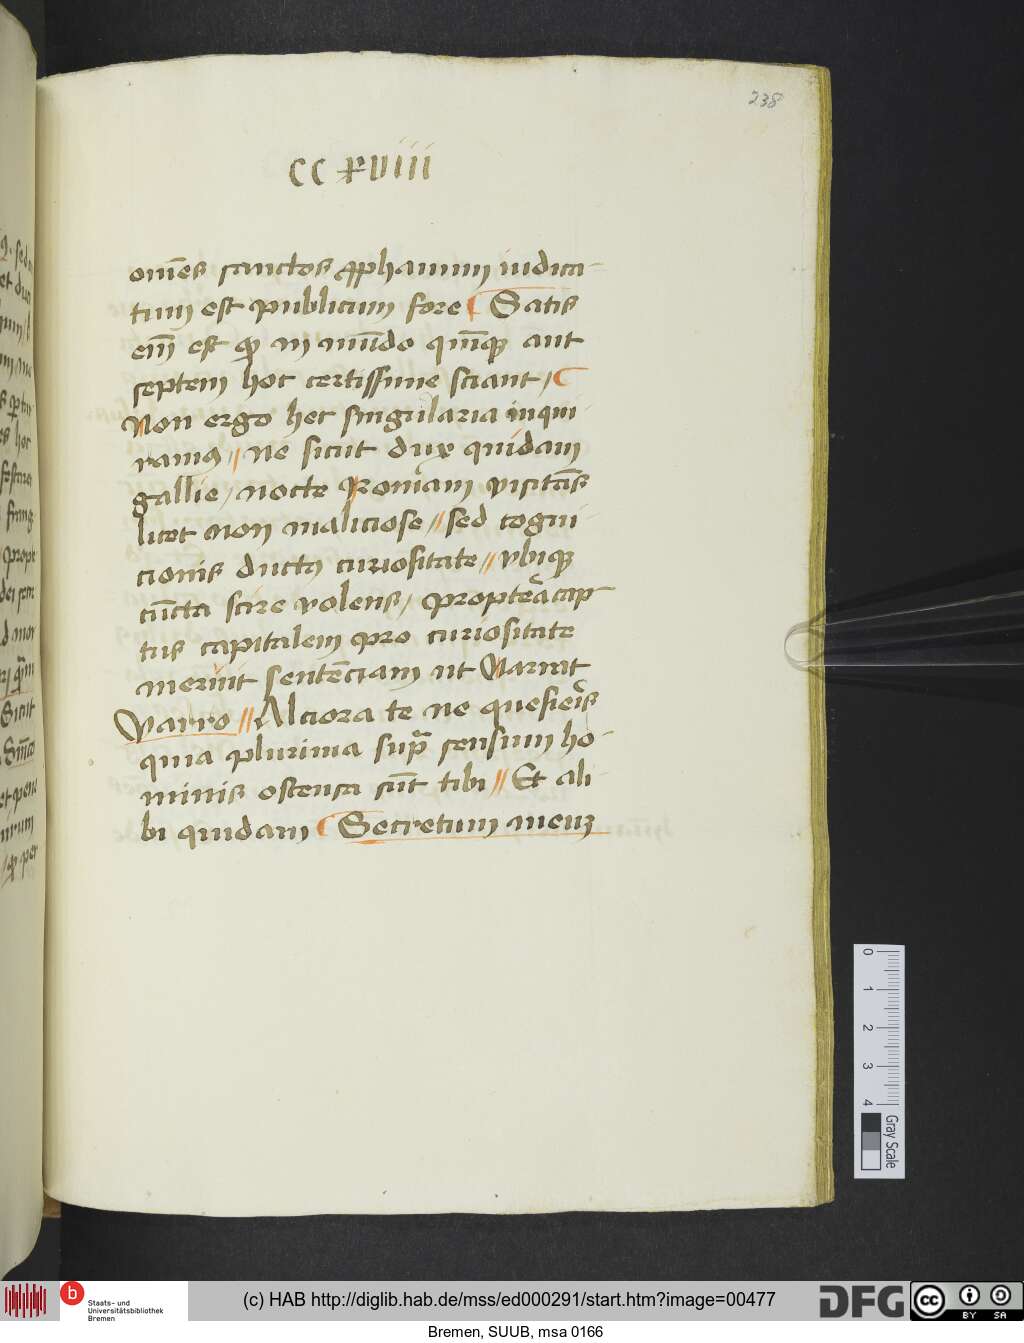 238
CC xviiii
om̄es sanctos ꝓphanum iudica-
tum est publicum fore Satis
em̄ est in mūdo
septem hoc certissime sciant /
Non ergo hec singularia inqui-
ramꝰ // ne sicut dux quidam
gallie / nocte Romam visitās
licet non maliciose // sed cogni-
cionis ductꝰ curiositate // vbiqꝫ
cūcta scire volens / propterea cap-
tus capitalem pro curiositate
meruit sentēciam ut Narrat
Varro // Alciora te ne quesieris
quia plurima supra sensum ho-
minis ostensa sūt tibi // Et ali-
bi quidam Secretum meuꝫ
0 1 2 3 4
Gray Scale
b
Staats- und
Universitätsbibliothek
Bremen
(c) HAB http://diglib.hab.de/mss/ed000291/start.htm?image=00477
DFG
cc
BY SA
Bremen, SUUB, msa 0166